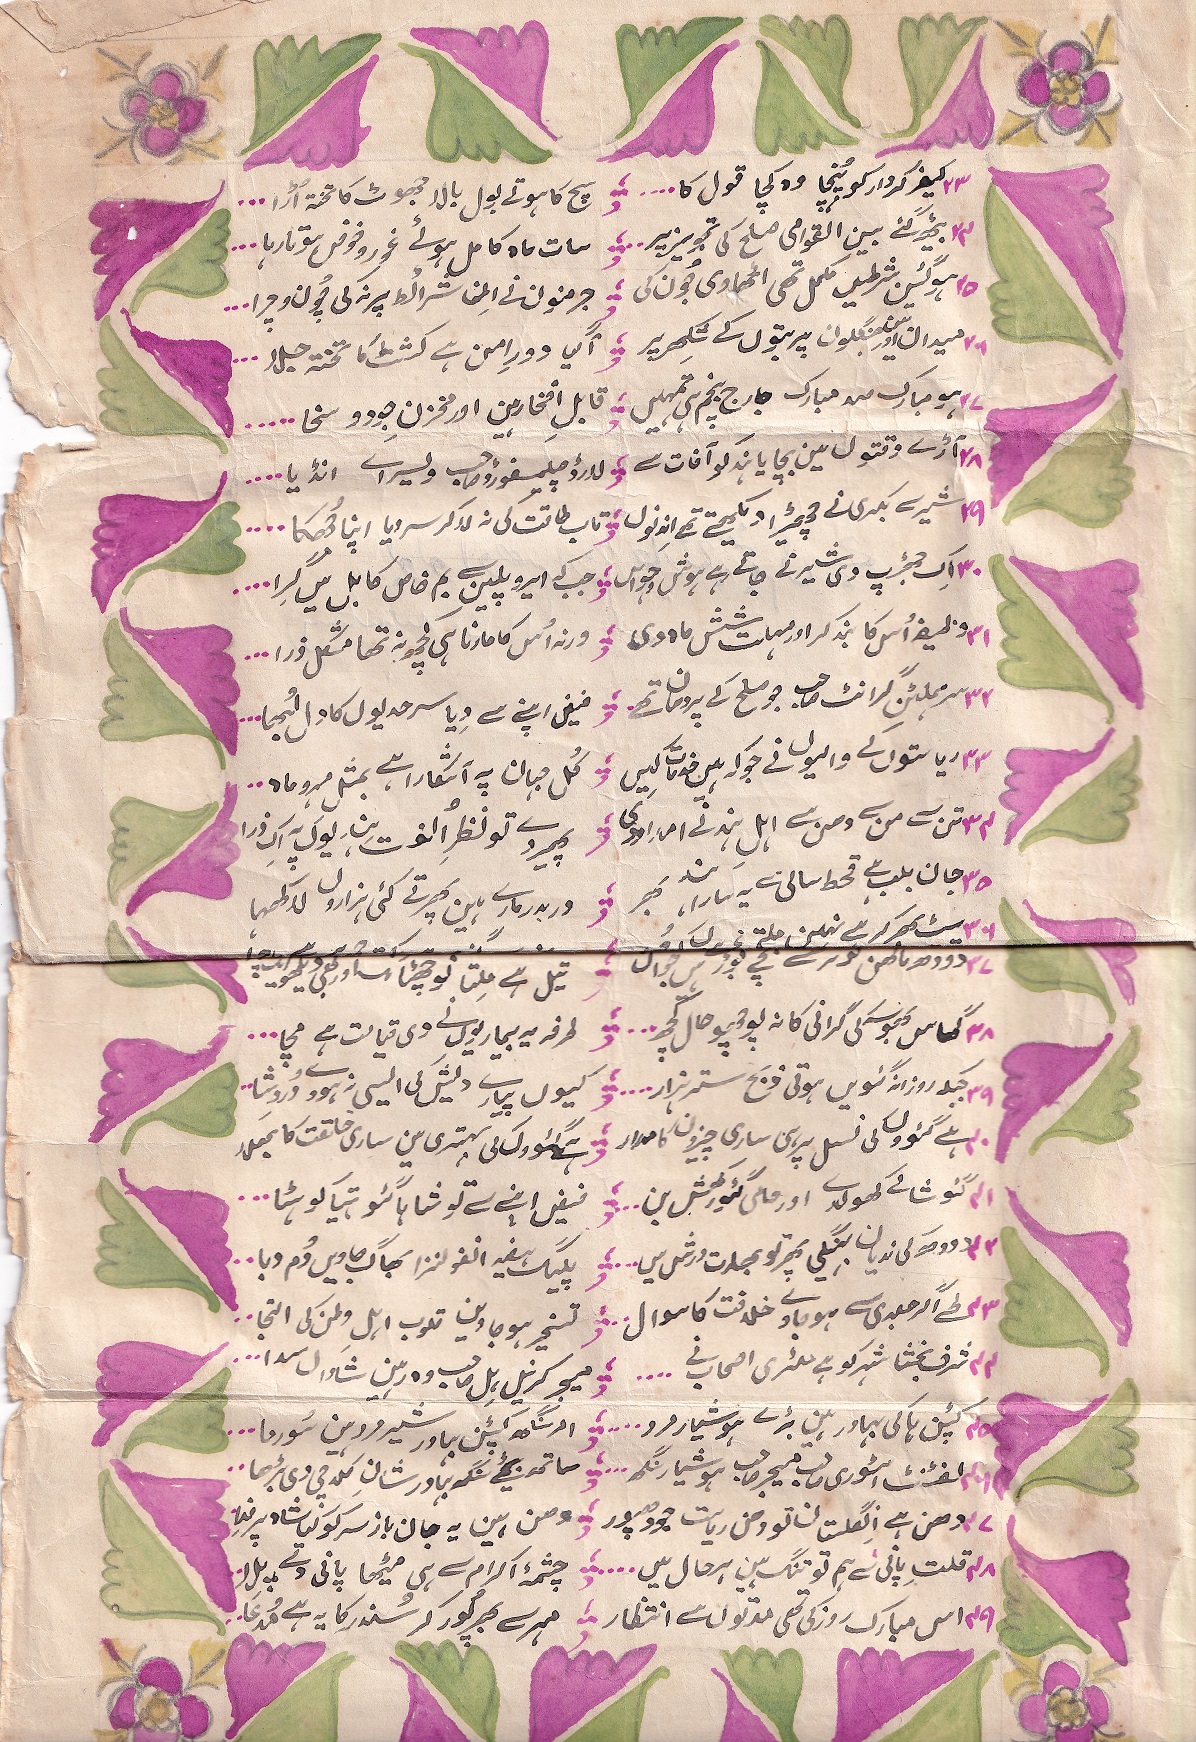 ۲۳ کیفر کردار کو پہنچا وہ کچا قول کا .... سچ کا ہوئے بول بالا جھوٹ کا تختہ اُڑا ...
۲۴ بیٹھ گئے بین القوامی صلح کی تجویز پر ... سات ماہ کامل ہوئے غور و خوض ہوتا رہا ...
۲۵ ہوگئیں شرطیں مکمل تھی اٹھاویں جُون کی جرمنوں نے اِن شرائط پر نہ کی چُون و چرا ...
۲۶ میدان اور جنگلوں پربتوں کے شکھر پر آگیا دورِ امن ہے کشٹ کا تختہ جلا ...
۲۷ ہو مبارک صد مبارک جارج پنجم ہی تمہیں قابلِ افتخار ہیں اور مخزنِ جود و سخا .....
۲۸ آڑے وقتوں میں بچایا ہند کو آفات سے لارڈ چلیمسفورڈ صاحب ویسراے انڈیا .....
۲۹ شیر سے بکری نے چھیڑا دیکھتے تھے اِن دنوں تاب طاقت کی نہ لاکر سر دیا اپنا جُھکا .....
۳۰ اِک جھڑپ دی شیر نے جاتے رہے ہوش و حواس جب کے ایروپلین سے بم خاص کابل میں گِرا ...
۳۱ وظیفہ اُس کا بند کر اور مہلت شش ماہ دی ورنہ اُس کا مارنا ہی کچھ نہ تھا مشکل ذرا ...
۳۲ سر ہملٹن گرانٹ صاحب جو صلح کے پردھان تھے فیض اپنے سے دِیا سرحدیوں کا دل لُبھا ...
۳۳ ریاستوں کے والیوں نے جو کہ ہیں خدمات کیں کُل جہان پہ آشکارا ہے بمثل مہر و ماہ ...
۳۴ تن سے من سے دھن سے اہل ہند نے امداد دی پھیر دے تو نظرِ اُلفت پہ اِک ذرا
۳۵ جان بلب ہے قحط سالی سے یہ سارا ہند بھر در بدر مارے ہیں پھرتے کئی ہزاروں لا کھہا
۳۶ پیٹ بھر کر ہے نہیں
۳۷ دودھ مکھن
۳۸ گھاس بھوسہ کی گرانی کا نہ پوچھو حال کچھ ... طرفہ یہ بیماریوں نے دی قیامت ہے مچا ...
۳۹ جبکہ روزانہ گئویں ہوتی ذبح ستر ہزار .... کیوں پیارے دیش کی ایسی نہ ہووے دُردشا ..
۴۰ ہے گئووں کی نسل پر ہی ساری چیزوں کا مدار ہے گئووں کی بہتری میں ساری خلقت کا بھلا
۴۱ گئو شالے کھولدے اور حامی گئو رکھش بن ... فیض اپنے سے تو شاہا گئو ہتیا کو ہٹا ...
۴۲ دودھ کی ندیاں بہنگی پھر تو بھارت ورش میں .... پلیگ ہیضہ انفلونزا بھاگ جاویں دُم دبا ..
۴۳ طے اگر جلدی سے ہوجاوے خلافت کا سوال ... تسخیر ہوجاویں قلوب اہل وطن کی التجا ..
۴۴ شرف بخشا شہر کو ہے ملٹری اصحاب نے .... میجو کرنیل ہِل صاحب وہ رہیں شاداں سدا ...
۴۵ کپٹن ہاکی بہادر ہیں بڑے ہوشیار مرد .... امر سنگھ کپٹن بہادر شیر مرد ہیں سُورما ...
۴۶ لفٹنٹ اسٹوری صاحب میجر صاحب ہوشیار سنگھ ... ساتھ سنگھ بہادر شان دی بڑھا ..
۴۷ دھن ہے اِنگلستان تو دھن ریاست جودھپور دھن ہیں یہ جان باز سر کو کیا شاہ پر فِدا
۴۸ قلتِ پانی سے ہم تو تنگ ہیں ہر حال میں ..... چشمۂ اکرام سے ہی میٹھا پانی دے پلا
۴۹ اس مبارک روز کی تھی مدتوں سے انتظار مہر سے بھرپُور کر سُندر کا یہ ہے مُدعَا ..